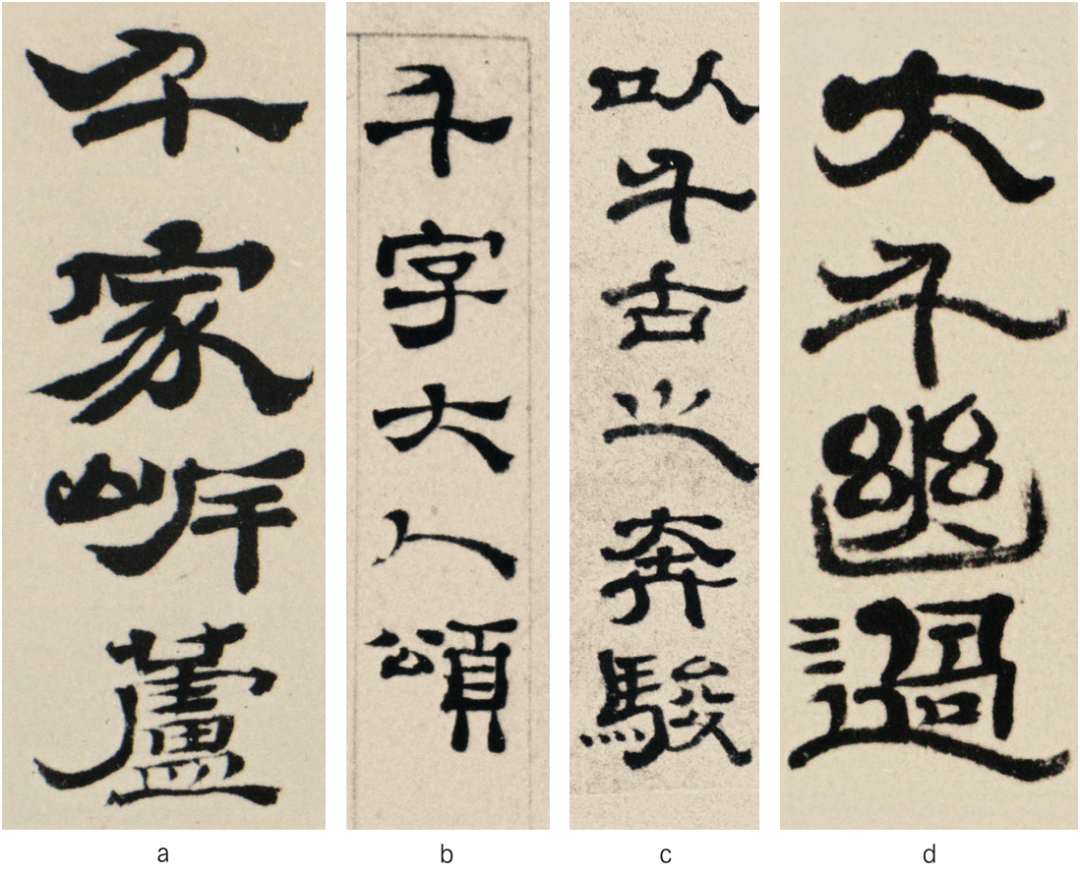 千家蘆
千字大人頌
以千古之奔駿
大千幽過
a b c d